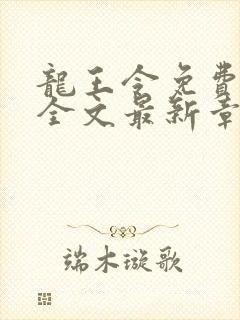 龍王令免費
全文最新章
端木璇歌